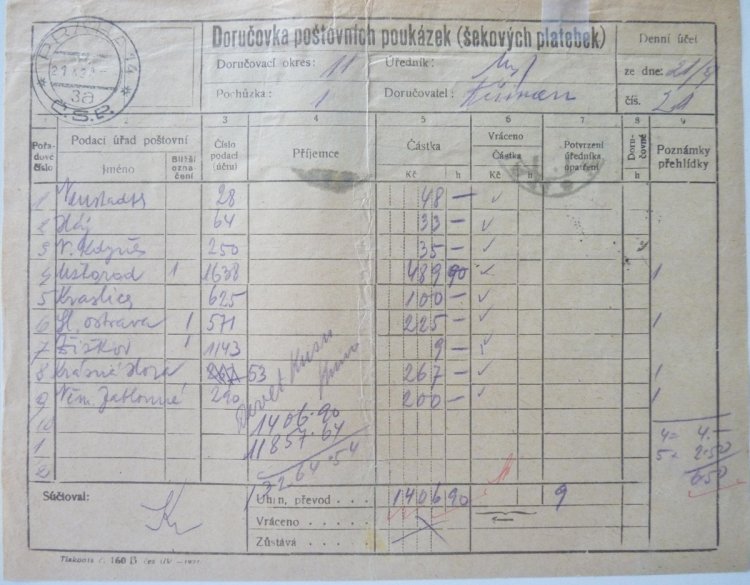 PRAHA 14
3a
Č.S.R.
Doručovka poštovních poukázek (šekových platebek)
Doručovací okres: 11 Úředník:
Pochůzka: 1 Doručovatel:
Denní účet
ze dne: 21/9
čís. 21
1 2 3 4 5 6 7 8 9
Pořadové číslo Podací úřad poštovní Číslo podací (účtu) Příjemce Částka Vráceno Potvrzení úředníka opatření Doručovné Poznámky přehlídky
Jméno Bližší označení Kč h Částka Kč h h
1 Neustadtl 28 48 —
2 Háj 64 33 —
3 N. Kdyně 250 35 —
4 Užhorod 1 1638 489 90 1
5 Kraslice 625 100 —
6 Sl. ostrava 1 571 225 — 1
7 Žižkov 1 1143 9 —
8 Krásná Hora 53 267 — 1
9 Něm. Jablonné 290 200 — 1
10 1406.90
1 11857.64
2 13264.54
4 = 4.—
5 = 2.50
6.50
Součtoval:
Úhrn, převod . . . . 1406 90 9
Vráceno . . . .
Zůstává . . . .
Tiskopis č. 160 B